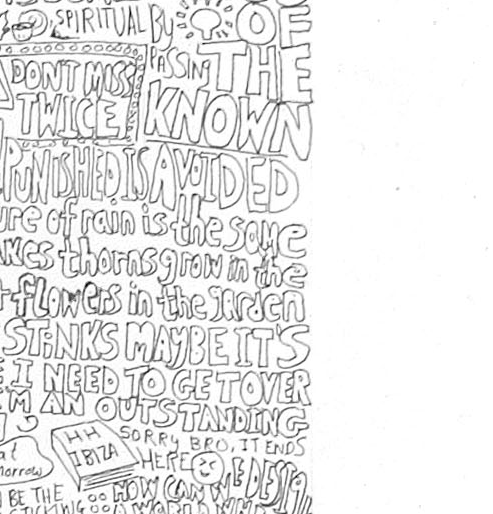 SPIRITUAL BY
OF
PASSIN
THE
DON'T MISS
TWICE
KNOWN
PUNISHED IS AVOIDED
ure of rain is the same
akes thorns grow in the
t flowers in the garden
STINKS MAYBE IT'S
E I NEED TO GET OVER
I'M AN OUTSTANDING
SORRY BRO, IT ENDS
HERE
HH
IBIZA
at
morrow
BE THE
HOW CAN WE DESIGN
A WORLD